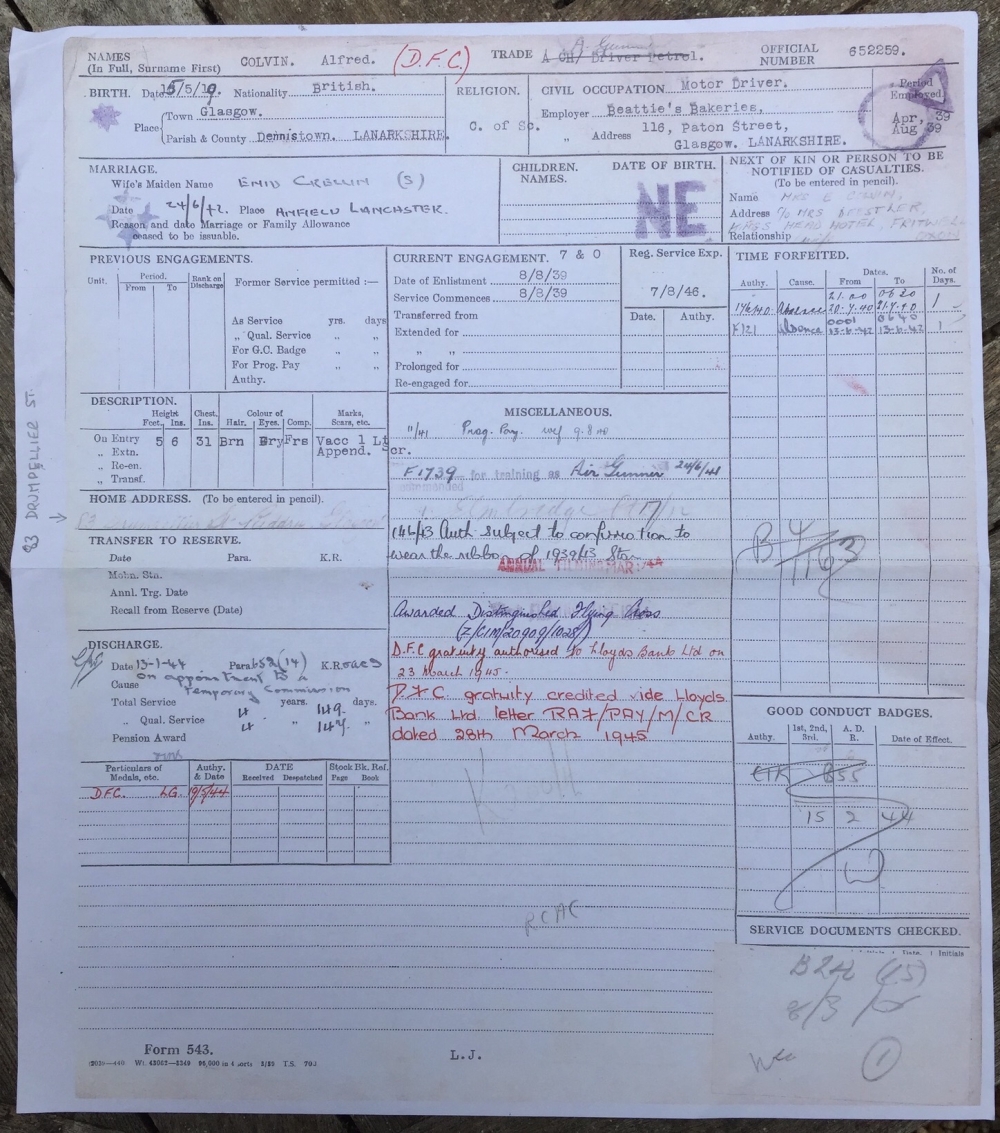 NAMES
(In Full, Surname First) COLVIN. Alfred. (D.F.C.) TRADE A GH/ Driver Petrol. OFFICIAL NUMBER 652259.
BIRTH. Date 15/5/19. Nationality British.
Place Town Glasgow.
Parish & County Dennistown. LANARKSHIRE.
RELIGION.
C. of Sc.
CIVIL OCCUPATION Motor Driver.
Employer Beattie's Bakeries,
" Address 116, Paton Street,
Glasgow. LANARKSHIRE.
Period Employed.
Apr, 39
Aug 39
MARRIAGE.
Wife's Maiden Name ENID CRELLIN (S)
Date 24/6/42. Place ANFIELD LANCASTER.
Reason and date Marriage or Family Allowance
ceased to be issuable.
CHILDREN. DATE OF BIRTH.
NAMES.
NE
NEXT OF KIN OR PERSON TO BE
NOTIFIED OF CASUALTIES.
(To be entered in pencil).
Name MRS E
Address c/o MRS
HEAD HOTEL,
Relationship
PREVIOUS ENGAGEMENTS.
Unit. Period. Rank on Discharge
From To
Former Service permitted :—
As Service yrs. days
" Qual. Service " "
For G.C. Badge " "
For Prog. Pay " "
Authy.
CURRENT ENGAGEMENT. 7 & 0
Date of Enlistment 8/8/39
Service Commences 8/8/39
Transferred from
Extended for
" "
Prolonged for
Re-engaged for
Reg. Service Exp.
7/8/46.
Date. Authy.
TIME FORFEITED.
Authy. Cause. Dates. No. of Days.
From To
21.00 0620
176/40 Absence 20-7-40 21-7-40 1
0001 0640
F121 Absence 13-6-42 13-6-42 1
DESCRIPTION.
Height Chest. Colour of Marks,
Feet. Ins. Ins. Hair. Eyes. Comp. Scars, etc.
On Entry 5 6 31 Brn Gry Frs Vacc 1 Lt
" Extn. Append. Scr.
" Re-en.
" Transf.
HOME ADDRESS. (To be entered in pencil).
83 DRUMPELLIER ST.
TRANSFER TO RESERVE.
Date Para. K.R.
Mobn. Stn.
Annl. Trg. Date
Recall from Reserve (Date)
MISCELLANEOUS.
11/41 Prog. Pay. wef 9.8.40
F1739 for training as Air Gunner 24/6/41
146/43 Auth subject to confirmation to
wear the ribbon of 1939/43 Star
ANNUAL MAR 44
Awarded Distinguished Flying Cross
(Z/CIM/20909/1028/)
D.F.C gratuity authorised to Lloyds Bank Ltd on
23 March 1945.
D.F.C. gratuity credited vide Lloyds
Bank Ltd. letter RAF/PAY/M/CR
dated 28th March 1945
B 4/1163
DISCHARGE.
Date 13-1-44 Para 652(14) K.R.
Cause On appointment to a
Temporary Commission
Total Service 4 years. 149 days.
" Qual. Service 4 " 147 "
Pension Award
Particulars of Medals, etc. Authy. & Date DATE Stock Bk. Ref.
Received Despatched Page Book
DFC. LG. 19/5/44
GOOD CONDUCT BADGES.
Authy. 1st, 2nd, 3rd. A. D. R. Date of Effect.
15 2 44
RCAC
SERVICE DOCUMENTS CHECKED.
Date. Initials
8/3
1
Form 543.
L.J.